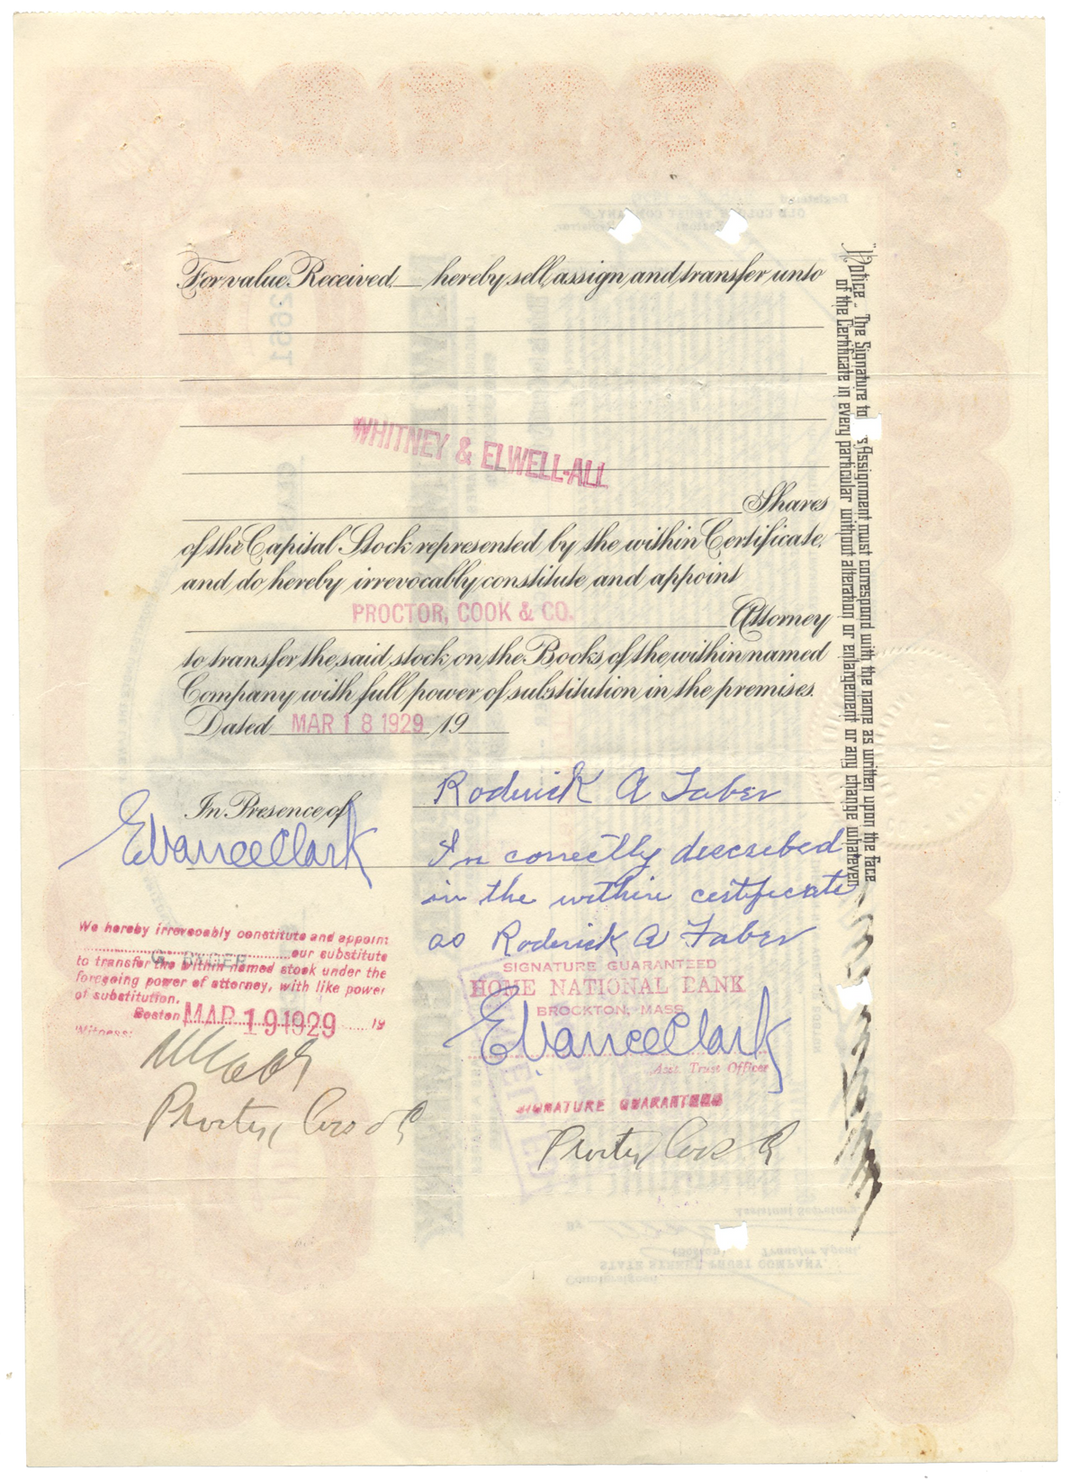 For value Received hereby sell, assign and transfer unto
WHITNEY & ELWELL-ALL
Shares
of the Capital Stock represented by the within Certificate,
and do hereby irrevocably constitute and appoint
PROCTOR, COOK & CO. Attorney
to transfer the said stock on the Books of the within named
Company with full power of substitution in the premises.
Dated MAR 18 1929 19
Roderick A Faber
In Presence of
E Vance Clark
In correctly described
in the within certificate
as Roderick A Faber
SIGNATURE GUARANTEED
HOME NATIONAL BANK
BROCKTON, MASS.
E Vance Clark
Asst. Trust Officer
SIGNATURE GUARANTEED
Proctor, Cook & Co
We hereby irrevocably constitute and appoint
our substitute
to transfer the within named stock under the
foregoing power of attorney, with like power
of substitution.
Boston MAR 19 1929 19
Witness:
Proctor, Cook & Co
Notice - The Signature to Assignment must correspond with the name as written upon the face
of the Certificate in every particular without alteration or enlargement or any change whatever.